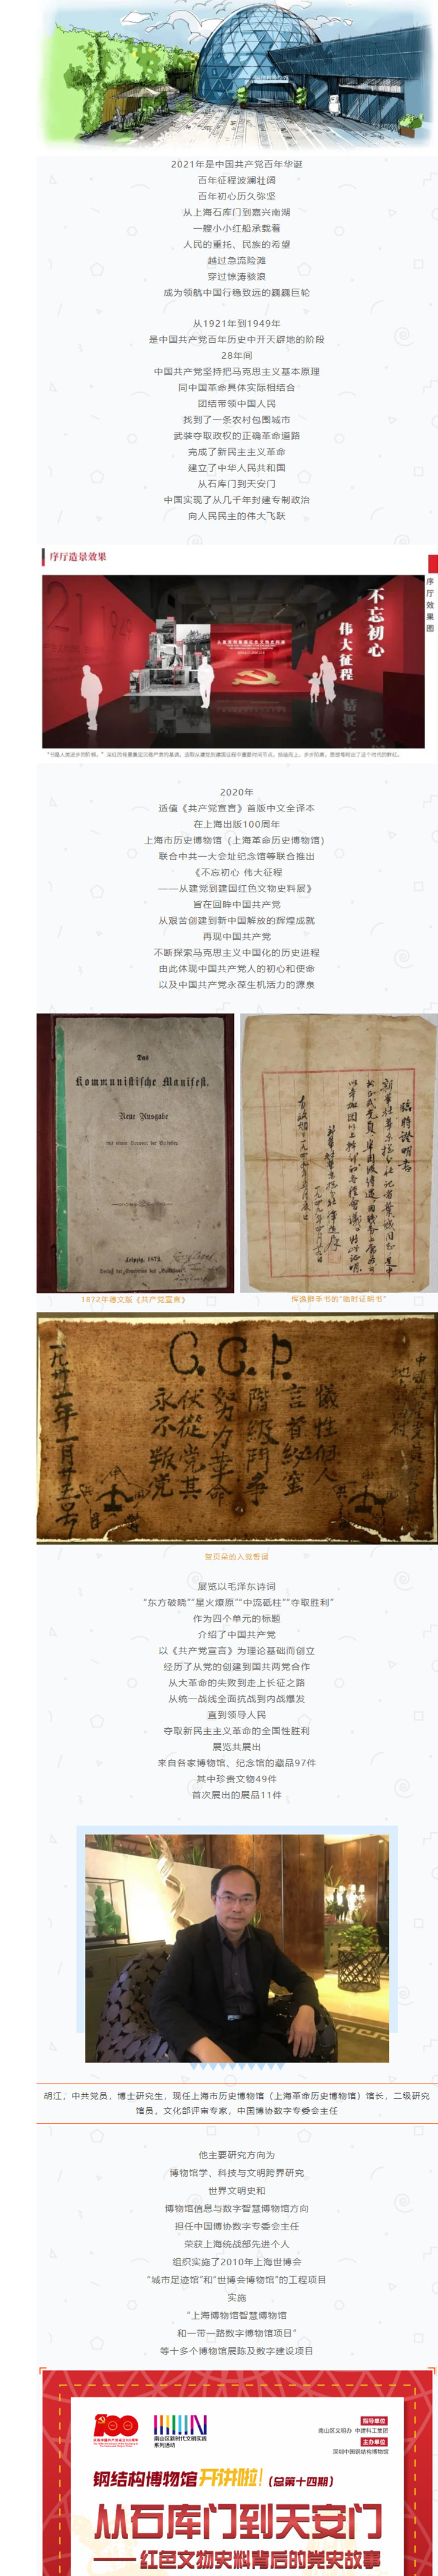 2021年是中国共产党百年华诞
百年征程波澜壮阔
百年初心历久弥坚
从上海石库门到嘉兴南湖
一艘小小红船承载着
人民的重托、民族的希望
越过急流险滩
穿过惊涛骇浪
成为领航中国行稳致远的巍巍巨轮
从1921年到1949年
是中国共产党百年历史中开天辟地的阶段
28年间
中国共产党坚持把马克思主义基本原理
同中国革命具体实际相结合
团结带领中国人民
找到了一条农村包围城市
武装夺取政权的正确革命道路
完成了新民主主义革命
建立了中华人民共和国
从石库门到天安门
中国实现了从几千年封建专制政治
向人民民主的伟大飞跃
序厅造景效果
序厅效果图
不忘初心
伟大征程
2020年
适值《共产党宣言》首版中文全译本
在上海出版100周年
上海市历史博物馆（上海革命历史博物馆）
联合中共一大会址纪念馆等联合推出
《不忘初心 伟大征程
——从建党到建国红色文物史料展》
旨在回眸中国共产党
从艰苦创建到新中国解放的辉煌成就
再现中国共产党
不断探索马克思主义中国化的历史进程
由此体现中国共产党人的初心和使命
以及中国共产党永葆生机活力的源泉
Das
Kommunistische Manifest.
Neue Ausgabe
mit einem Vorwort der Verfasser.
Leipzig, 1872.
臨時證明書
1872年德文版《共产党宣言》
恽逸群手书的“临时证明书”
C.C.P.
犧牲個人
言首紗蜜
階級鬥爭
努力革命
伏從党其
永不叛党
一九卅一年一月廿五号
贺页朵的入党誓词
展览以毛泽东诗词
“东方破晓”“星火燎原”“中流砥柱”“夺取胜利”
作为四个单元的标题
介绍了中国共产党
以《共产党宣言》为理论基础而创立
经历了从党的创建到国共两党合作
从大革命的失败到走上长征之路
从统一战线全面抗战到内战爆发
直到领导人民
夺取新民主主义革命的全国性胜利
展览共展出
来自各家博物馆、纪念馆的藏品97件
其中珍贵文物49件
首次展出的展品11件
胡江，中共党员，博士研究生，现任上海市历史博物馆（上海革命历史博物馆）馆长，二级研究
馆员，文化部评审专家，中国博协数字专委会主任
他主要研究方向为
博物馆学、科技与文明跨界研究
世界文明史和
博物馆信息与数字智慧博物馆方向
担任中国博协数字专委会主任
荣获上海统战部先进个人
组织实施了2010年上海世博会
“城市足迹馆”和“世博会博物馆”的工程项目
实施
“上海博物馆智慧博物馆
和一带一路数字博物馆项目”
等十多个博物馆展陈及数字建设项目
100
南山区新时代文明实践
系列活动
指导单位
南山区文明办 中建科工集团
主办单位
深圳中国钢结构博物馆
钢结构博物馆开讲啦！（总第十四期）
从石库门到天安门
——红色文物史料背后的党史故事